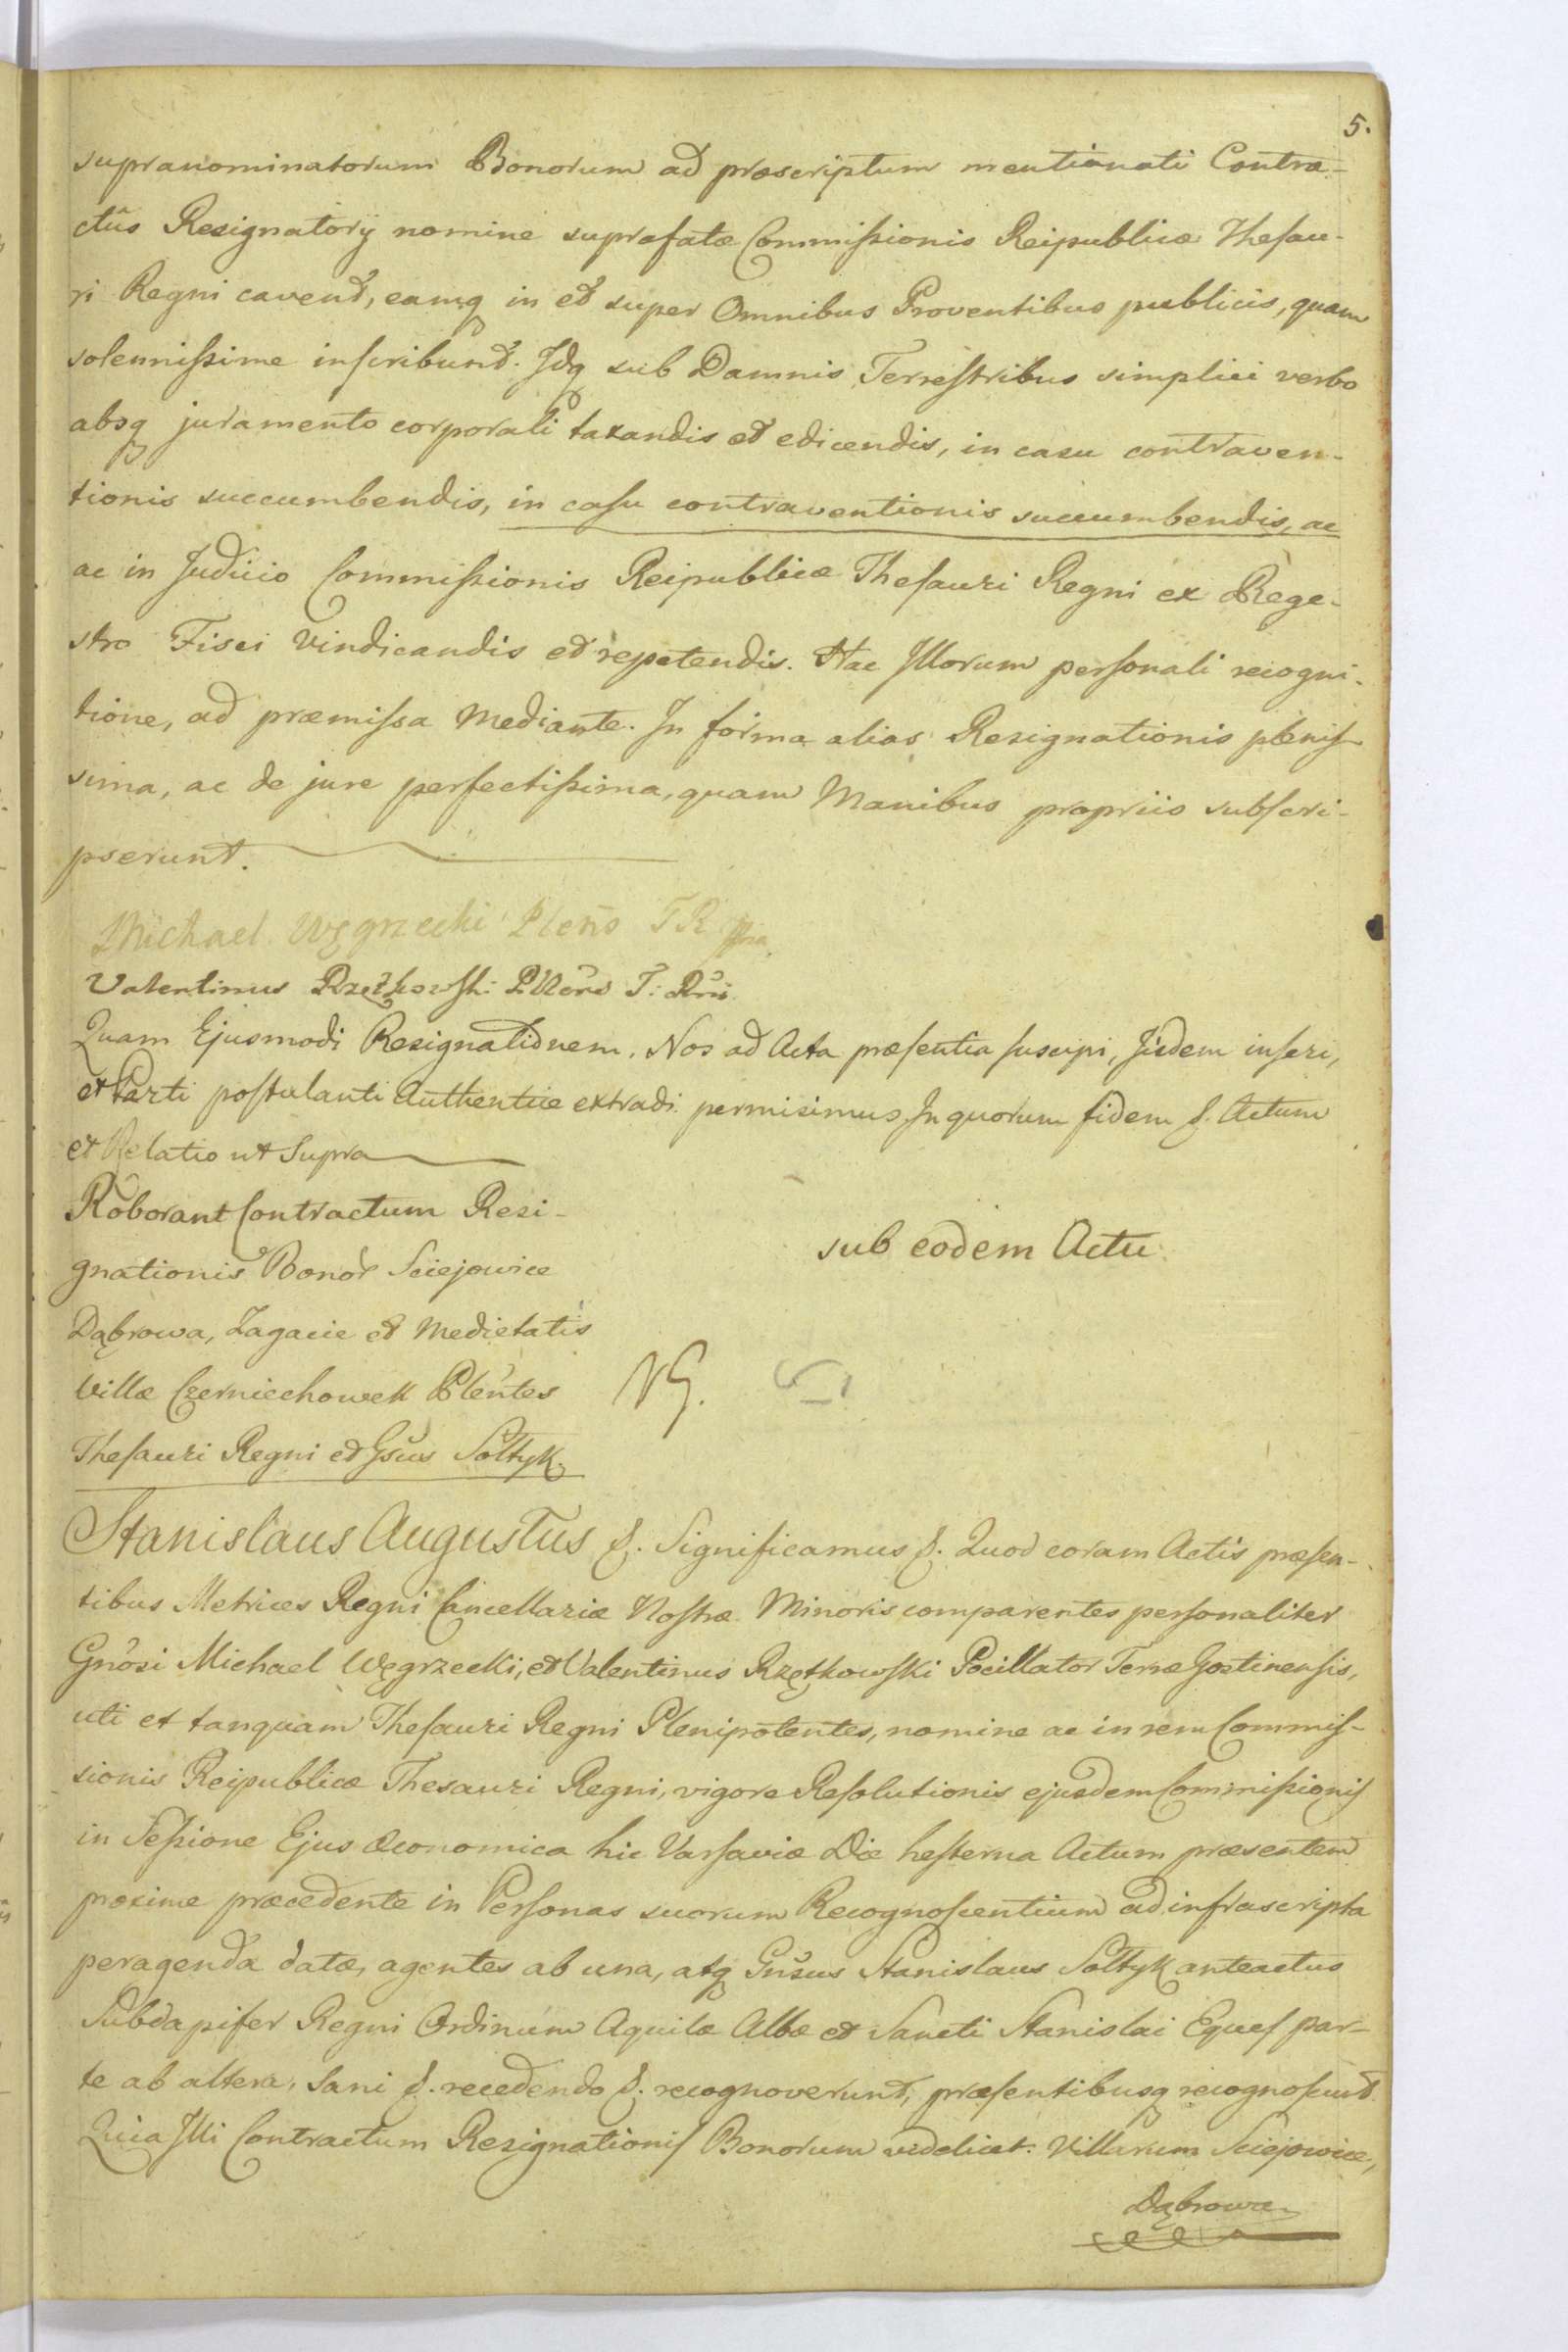 5.
supranominatorum Bonorum ad præscriptum mentionati Contra-
ctûs Resignatorÿ nomine suprafatæ Commißionis Reipublicæ Thesau-
ri Regni cavend, eamq in et super Omnibus Proventibus publicis, quam
solennißime inscribund. Idq sub Damnis Terrestribus simplici verbo
absq juramento corporali taxandis et edicendis, in casu contraven-
tionis succumbendis, in casu contraventionis succumbendis, ac
ac in Judicio Commißionis Reipublicæ Thesauri Regni ex Rege-
stro Fisci Vindicandis et repetendis. Hac Illorum personali recogni-
tione, ad præmissa mediante. In forma alias Resignationis plenis-
sima, ac de jure perfectißima, quam Manibus propriis subscri-
pserunt.
Michael Węgrzecki Pleño T R
Valentinus Rzętkowski
Quam Ejusmodi Resignationem. Nos ad Acta præsentia suscipi, Iisdem inseri,
et Parti postulanti Authentice extradi permisimus. In quorum fidem &. Actum
et Relatio ut Supra
Roborant Contractum Resi-
gnationis Bonor Sciejowice
Dąbrowa, Zagacie et Medietatis
Villæ Czerniechowek Plentes
Thesauri Regni et Gsus Sołtyk.
sub eodem Actu
NG.
Stanislaus Augustus &. Significamus &. Quod coram Actis præsen-
tibus Metrices Regni Cancellariæ Nostræ Minoris comparentes personaliter
Gnosi Michael Węgrzecki, et Valentinus Rzętkowski Pocillator Terræ Gostinensis,
uti et tanquam Thesauri Regni Plenipotentes, nomine ac in rem Commis-
sionis Reipublicæ Thesauri Regni, vigore Resolutionis ejusdem Commißionis
in Seßione Ejus Œconomica hic Varsaviæ Die hesterna Actum præsentem
proxime præcedente in Personas suorum Recognoscentium ad infrascripta
peragenda datæ, agentes ab una, atq Gnsus Stanislaus Sołtyk anteactus
Subdapifer Regni Ordinum Aquilæ Albæ et Sancti Stanislai Eques par-
te ab altera, Sani &. recedendo &. recognoverunt, præsentibusq recognoscunt.
Quia Illi Contractum Resignationis Bonorum videlicet: Villarum Sciejowice,
Dąbrowa